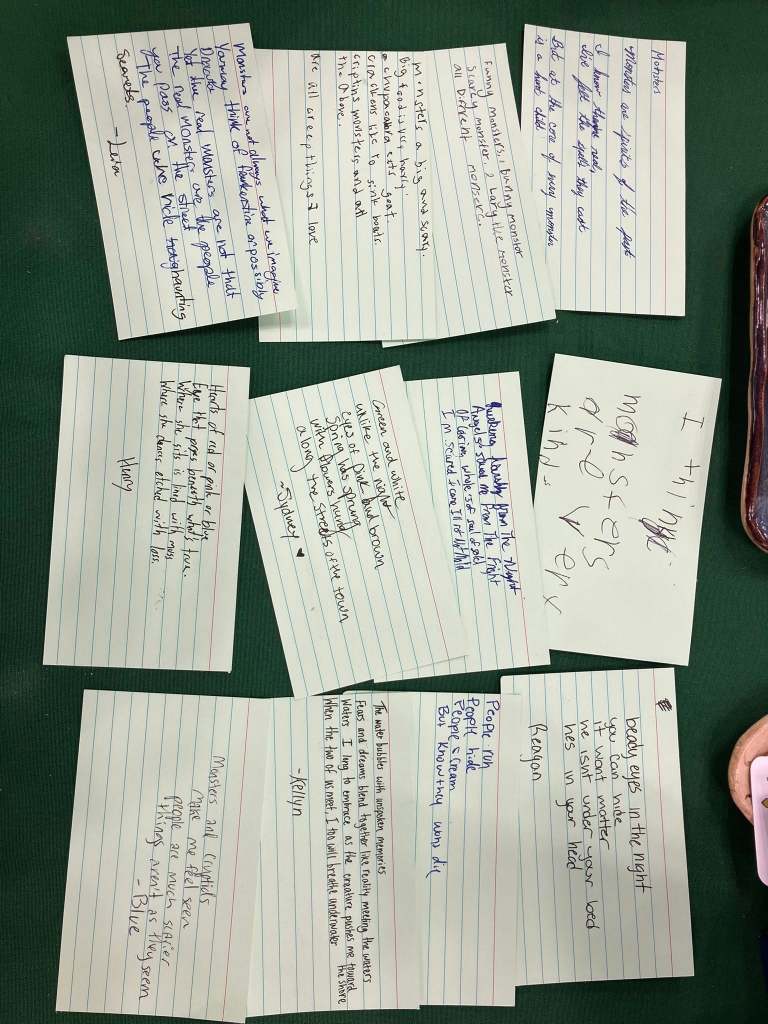 Monsters
Monsters are spirits of the past
I know they're real,
I've felt the spell they cast
But at the core of every monster
is a hurt child
I think
monsters
are very
kind
beady eyes in the night
you can hide
it wont matter
he isnt under your bed
hes in your head
Reagan
Funny monsters, 1 bunny monster
Scarly monster. 2 Lary the monster
all Difrent monsers.
from The Night
Angels saved me from The Fright
Of Losing whole's of soul of old
I'm scared
People run
People hide
People scream
But know they who die
monsters a big and scary.
Big food is very hairy.
chupacabra eats goat.
crackens like to sink boats.
criptins monsters and all
the above.
are all creep things I love
Green and white
unlike the night
eyes of pink and brown
spring has sprung
with flowers hung
along the streets of the town
~Sydney
The water bubbles with unspoken memories
Fears and dreams blend together like reality meeting the waters
Waters I ling to embrace as the creature pushes me toward the shore
When the two of us meet, I too will breathe underwater
-Kellyn
Monsters are not always what we imagine
You may think of Frankenstine or possibly
Dracula
Yet the real monsters are not that
The real monsters are the people
you pass on the street
The people who hide haunting
Secrets.
- Lena
Hearts of red or pink or blue
Eyes that peer beneath what's true.
Where she sits is lined with moss
Where she dances etched with loss.
Henry
Monsters and cryptids
make me feel seen
people are much scarier
things aren't as they seem
- Blue